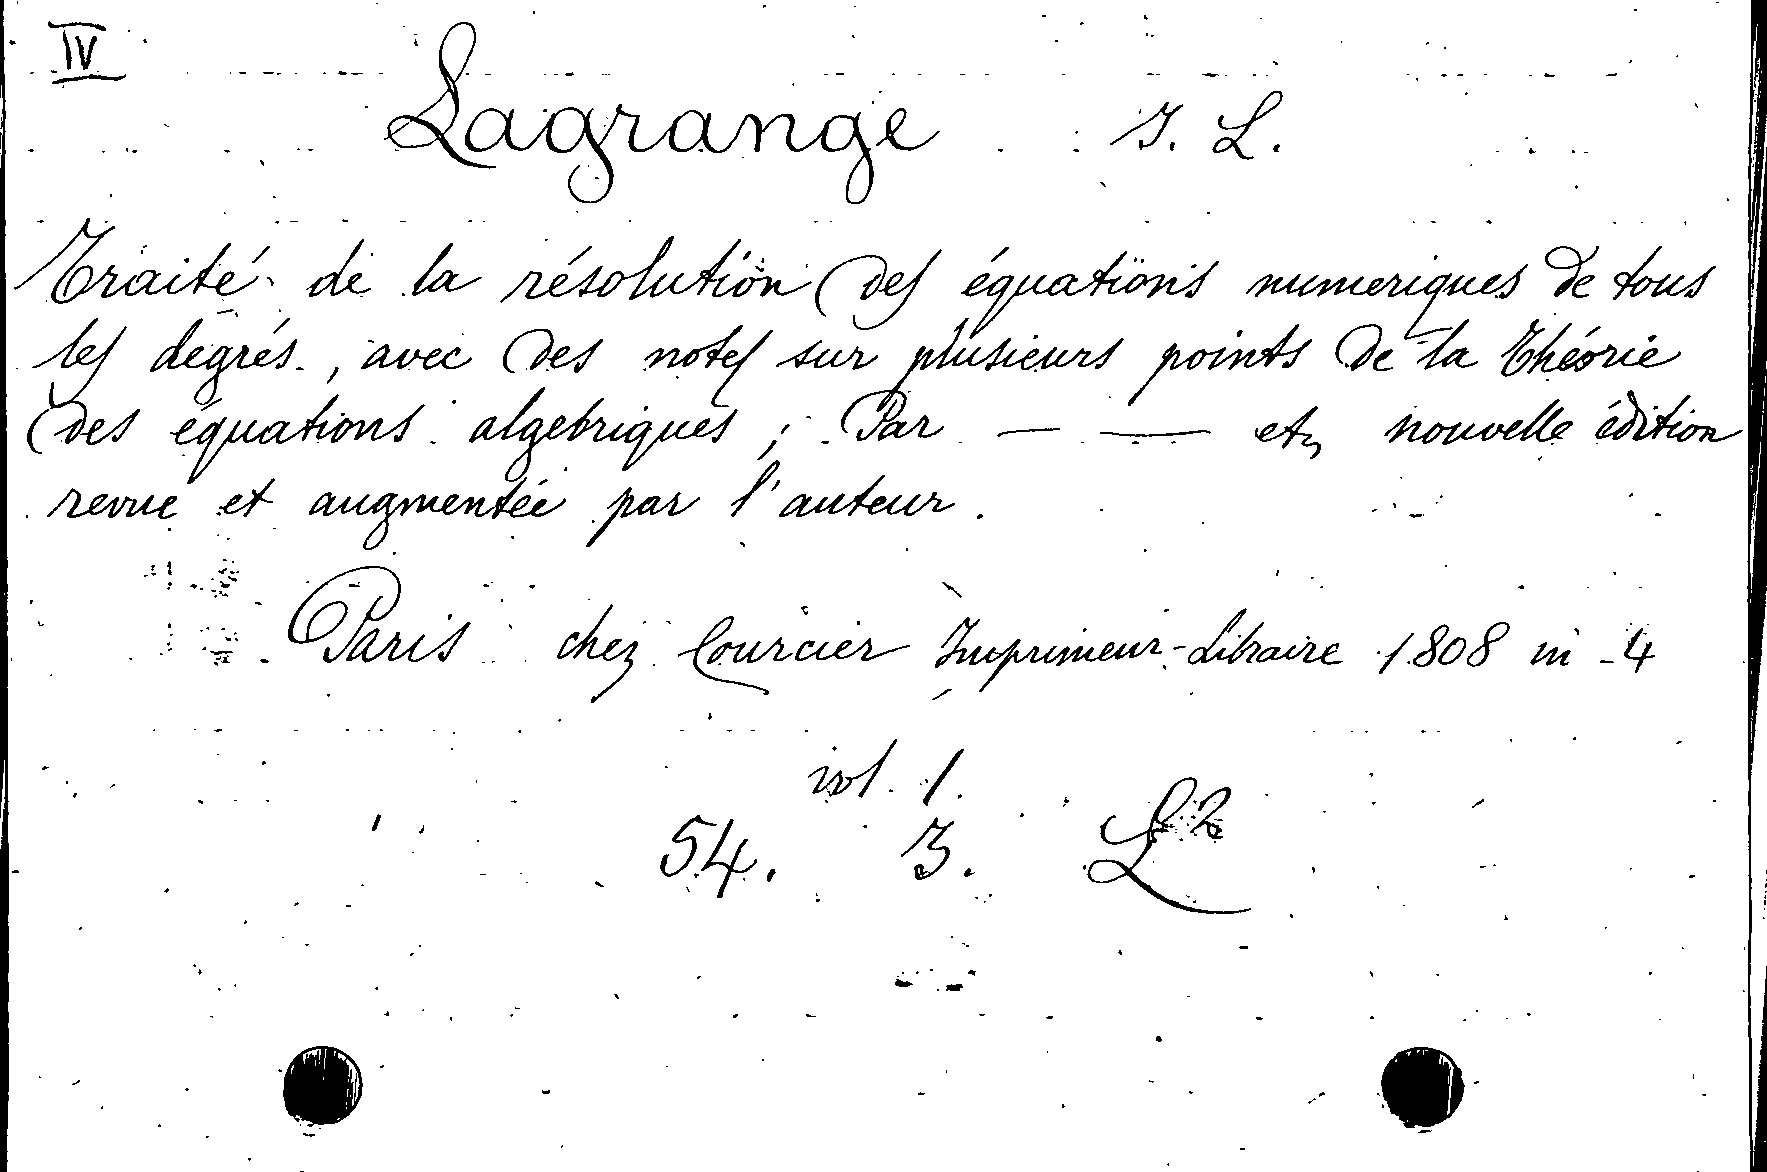 IV
Lagrange J. L.
Traité de la résolution des équations numeriques de tous
les degrés, avec des notes sur plusieurs points de la théorie
des équations algebriques; Par — — etc nouvelle édition
revue et augmentée par l'auteur.
Paris chez Courcier Imprimeur-Libraire 1808 in-4
vol. 1.
54. 3. L²